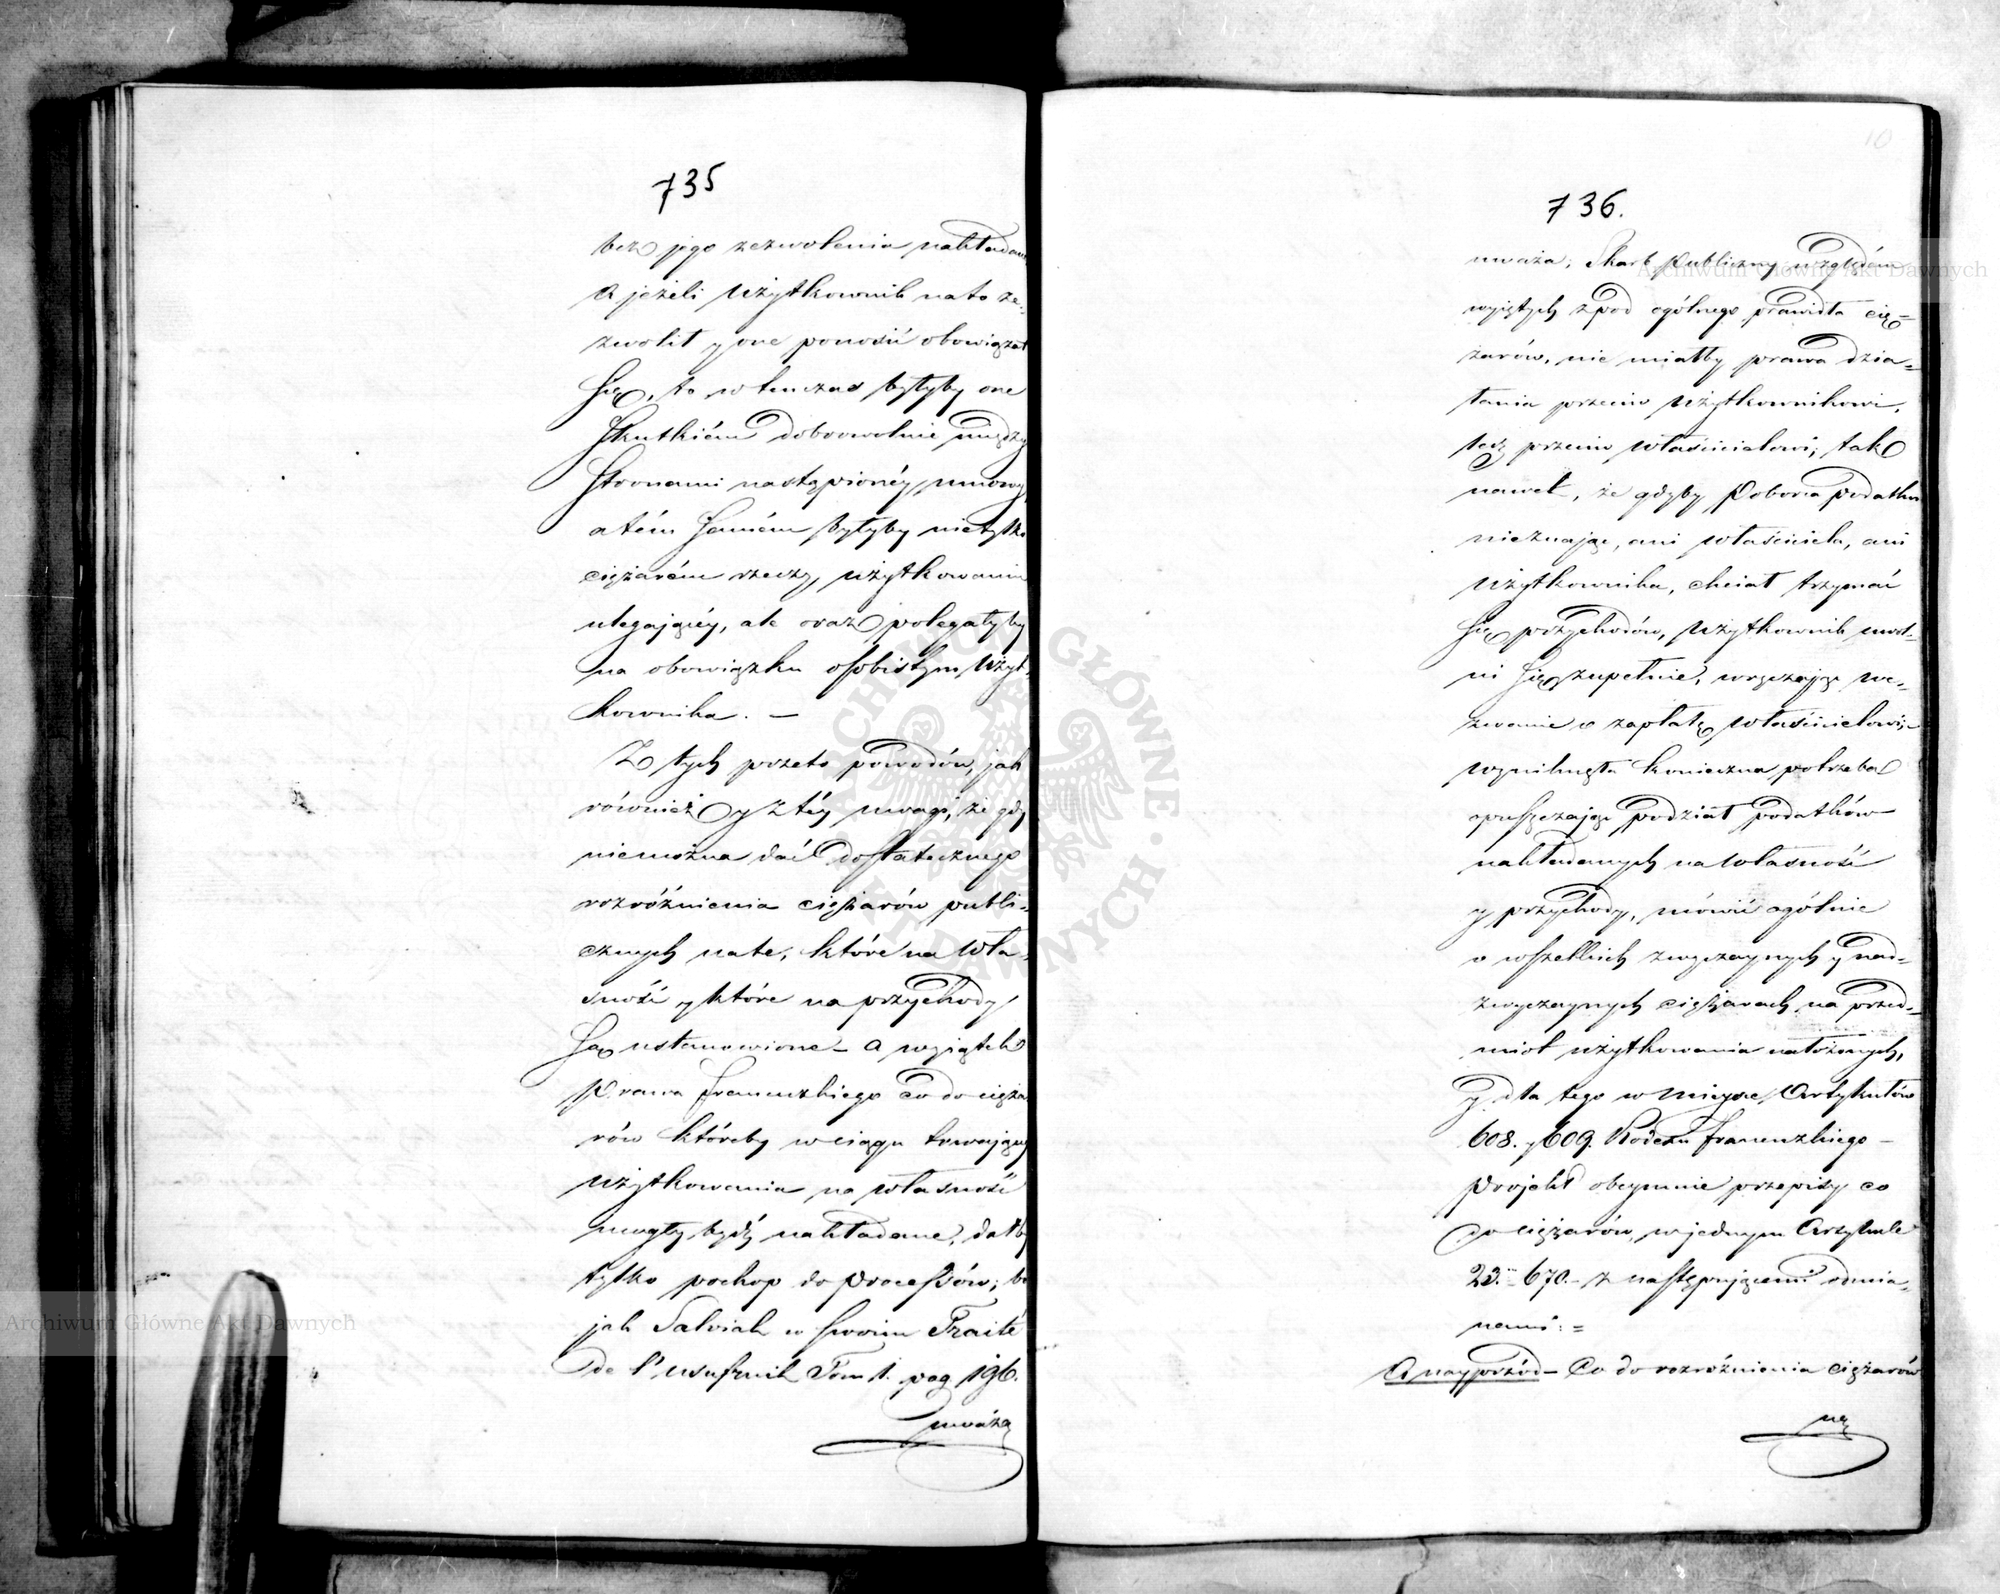 735
bez jego zezwolenia nakładan
A jeżeli Użytkownik nato ze-
zwolił y one ponosić obowiązał
się, to w tenczas byłyby one
skutkiém dobrowolnie między
stronami nastąpionéy umowy
a tém samém byłyby nietylko
ciężarém rzeczy, użytkowaniu
ulegaiącéy, ale oraz polegałyby
na obowiązku osobistym Użyt-
kownika. —
Z tych przeto powodów, jak
również y z téy uwagi, że gdy
niemożna dać dostatecznego
rozróżnienia ciężarów publi-
cznych na te, które na wła-
sność y które na przychody
są ustanowione — a wyiątek
Prawa francuzkiego co do cięża
rów któreby w ciągu trwaiącego
Użytkowania na własność
mogły bydź nakładane, dałby
tylko pochop do Processów; bo
jak Salviat w swoim Traité
de l'usufruit Tom 1. pag 196.
uważa
736.
uważa; Skarb Publiczny względem
wyiętych z pod ogólnego prawidła cię-
żarów, nie miałby prawa dzia-
łania przeciw Użytkownikowi,
lecz przeciw właścicielowi; tak
nawet, że gdyby Poborca podatku
nieznaiąc, ani właściciela, ani
Użytkownika, chciał trzymać
się przychodów, Użytkownik uwol-
ni się zupełnie, wręczaiąc we-
zwanie o zapłatę właścicielowi;
wyniknęła konieczna potrzeba
opuszczaiąc podział podatków
nakładanych na własność
y przychody, mówić ogólnie
o wszelkich zwyczaynych y nad-
zwyczaynych ciężarach na przed-
miot użytkowania nałożonych,
y dla tego w mieysce Artykułów
608. y 609. Kodexu francuzkiego —
Projekt obeymuie przepisy co
do ciężarów, w jednym Artykule
23. 670. — z następuiącemi odmia-
nami: =
A nayprzód — Co do rozróżnienia ciężarów
na
Archiwum Główne Akt Dawnych
Archiwum Główne Akt Dawnych
ARCHIWUM GŁÓWNE AKT DAWNYCH